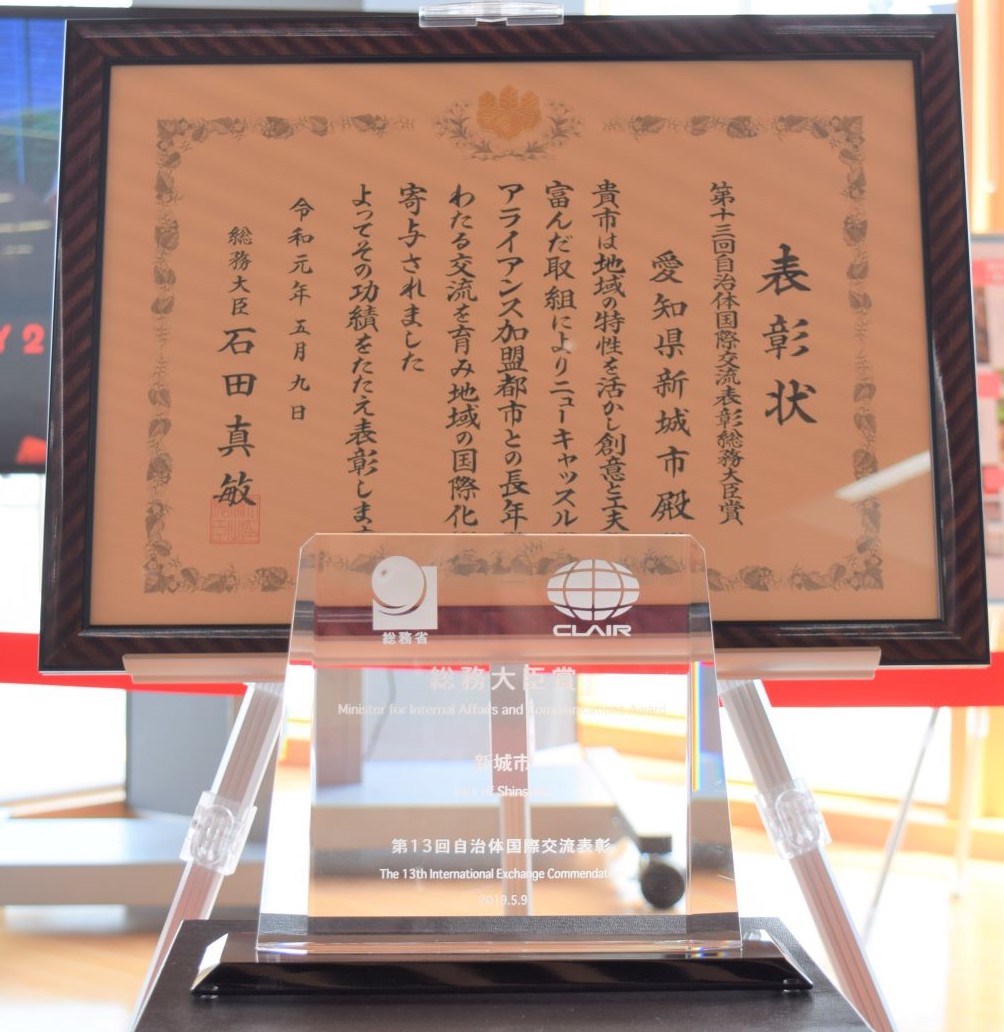 表彰状
第十三回自治体国際交流表彰総務大臣賞
愛知県新城市殿
貴市は地域の特性を活かし創意と工夫
富んだ取組によりニューキャッスル
アライアンス加盟都市との長年
わたる交流を育み地域の国際化
寄与されました
よってその功績をたたえ表彰しま
令和元年五月九日
総務大臣 石田真敏
Y 2
総務省
CLAIR
総務大臣賞
Minister for Internal Affairs and Communications Award
新城市
City of Shinshiro
第13回自治体国際交流表彰
The 13th International Exchange Commendat
2019.5.9